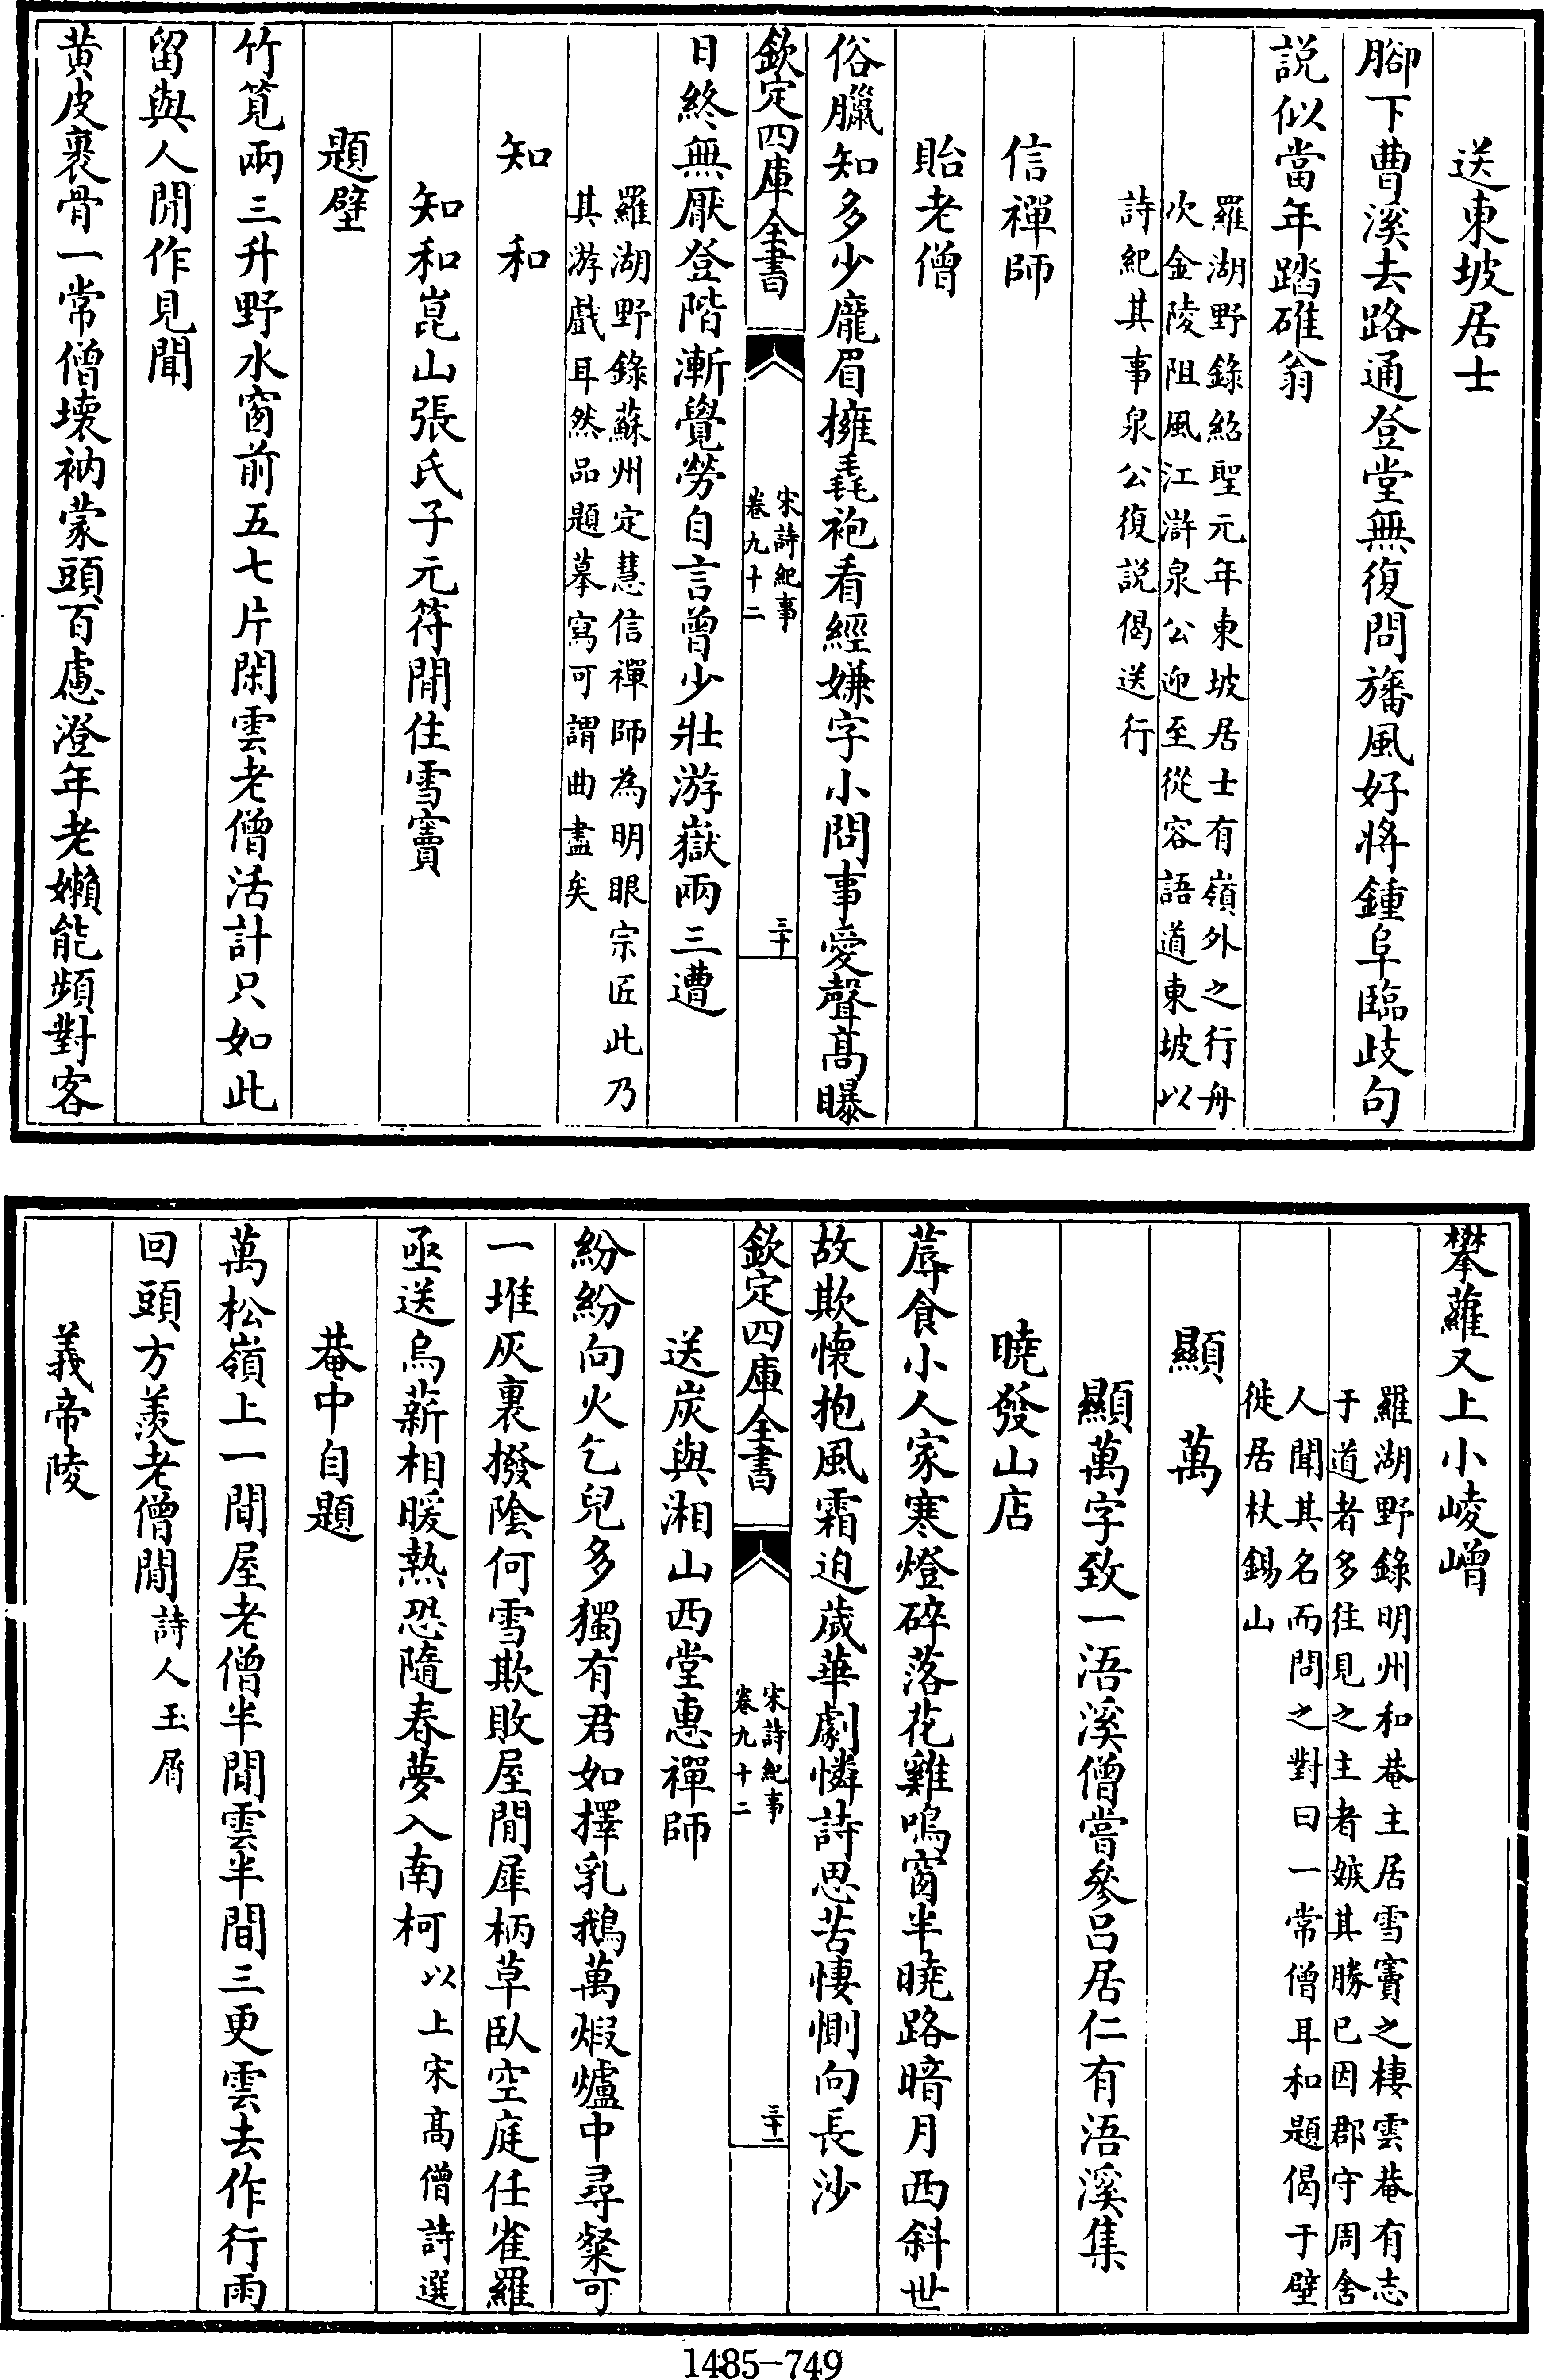 送東坡居士
腳下曹溪去路通登堂無復問旛風好將鍾阜臨歧句
説似當年踏碓翁
羅湖野錄紹聖元年東坡居士有嶺外之行舟
次金陵阻風江滸泉公迎至從容語道東坡以
詩紀其事泉公復説偈送行
信禪師
貽老僧
俗臘知多少龐眉擁毳袍看經嫌字小問事愛聲髙曝
欽定四庫全書
宋詩紀事
卷九十二
三十
日終無厭登階漸覺勞自言曾少壯游嶽兩三遭
羅湖野錄蘇州定慧信禪師為明眼宗匠此乃
其游戲耳然品題摹寫可謂曲盡矣
知和
知和崑山張氏子元符閒住雪竇
題壁
竹筧兩三升野水窗前五七片閑雲老僧活計只如此
留與人閒作見聞
黄皮裹骨一常僧壊衲蒙頭百慮澄年老嬾能頻對客
攀蘿又上小崚嶒
羅湖野錄明州和菴主居雪竇之棲雲菴有志
于道者多往見之主者嫉其勝已因郡守周舍
人聞其名而問之對曰一常僧耳和題偈于壁
徙居杖錫山
顯萬
顯萬字致一浯溪僧嘗參呂居仁有浯溪集
曉發山店
蓐食小人家寒燈碎落花雞鳴窗半曉路暗月西斜世
故欺懷抱風霜迫歳華劇憐詩思苦悽惻向長沙
欽定四庫全書
宋詩紀事
卷九十二
三十一
送炭與湘山西堂惠禪師
紛紛向火乞兒多獨有君如擇乳鵝萬煆爐中尋粲可
一堆灰裏撥陰何雪欺敗屋閒犀柄草臥空庭任雀羅
亟送烏薪相暖熱恐隨春夢入南柯以上宋髙僧詩選
菴中自題
萬松嶺上一間屋老僧半間雲半間三更雲去作行雨
回頭方羨老僧閒詩人玉屑
義帝陵
1485-749